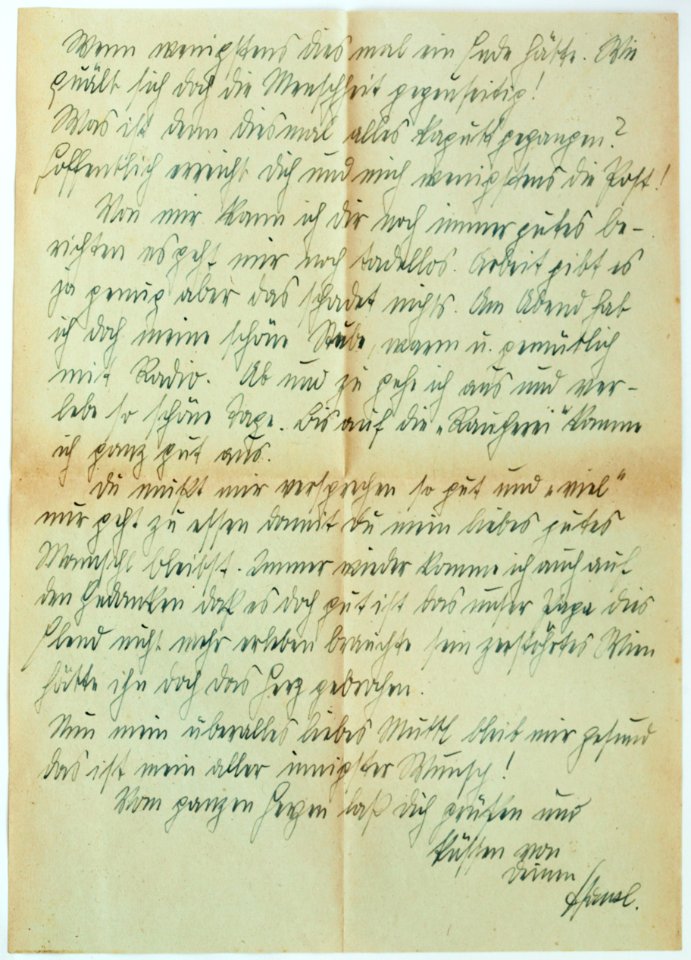 Wenn wenigstens diesmal ein Ende hätte. Wie
quält sich doch die Menschheit gegenseitig!
Was ist denn diesmal alles kaputt gegangen?
Hoffentlich erreicht dich und mich wenigstens die Post!
Von mir kann ich dir noch immer gutes be-
richten es geht mir noch tadellos. Arbeit gibt es
ja genug aber das schadet nichts. Am Abend hab
ich doch meine schöne Stube, warm u. gemütlich
mit Radio. Ab und zu gehe ich aus und ver-
lebe so schöne Tage. Bis auf die „Raucherei" komme
ich ganz gut aus.
Du mußt mir versprechen so gut und „viel"
nur geht zu essen damit du mein liebes gutes
bleibst. Immer wieder komme ich auch auf
den Gedanken daß es doch gut ist das unser Papa dies
Elend nicht mehr erleben brauchte sein zerstöhrtes Wien
hätte ihn doch das Herz gebrochen.
Nun mein überalles liebes Muttl bleib mir gesund
das ist mein aller innigster Wunsch!
Vom ganzen Herzen laß dich grüßen und
küssen von
deinem
Hansl.